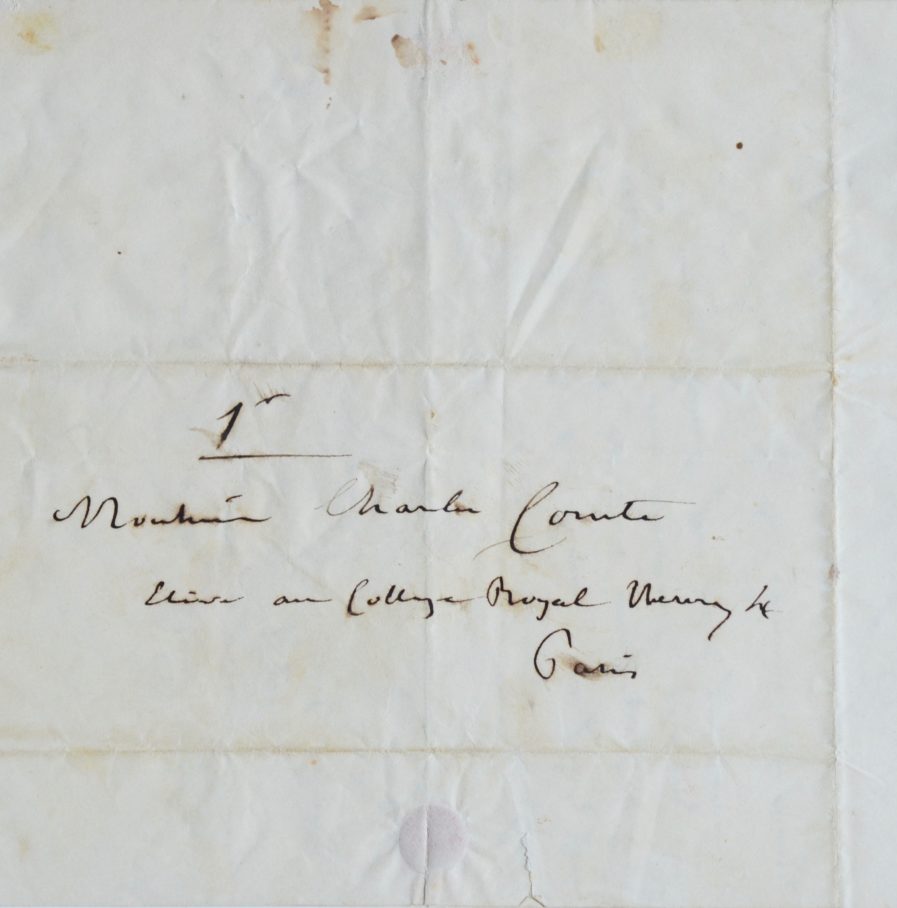 1r
Monsieur Charles Comte
Elève au College Royal Henry 4
Paris